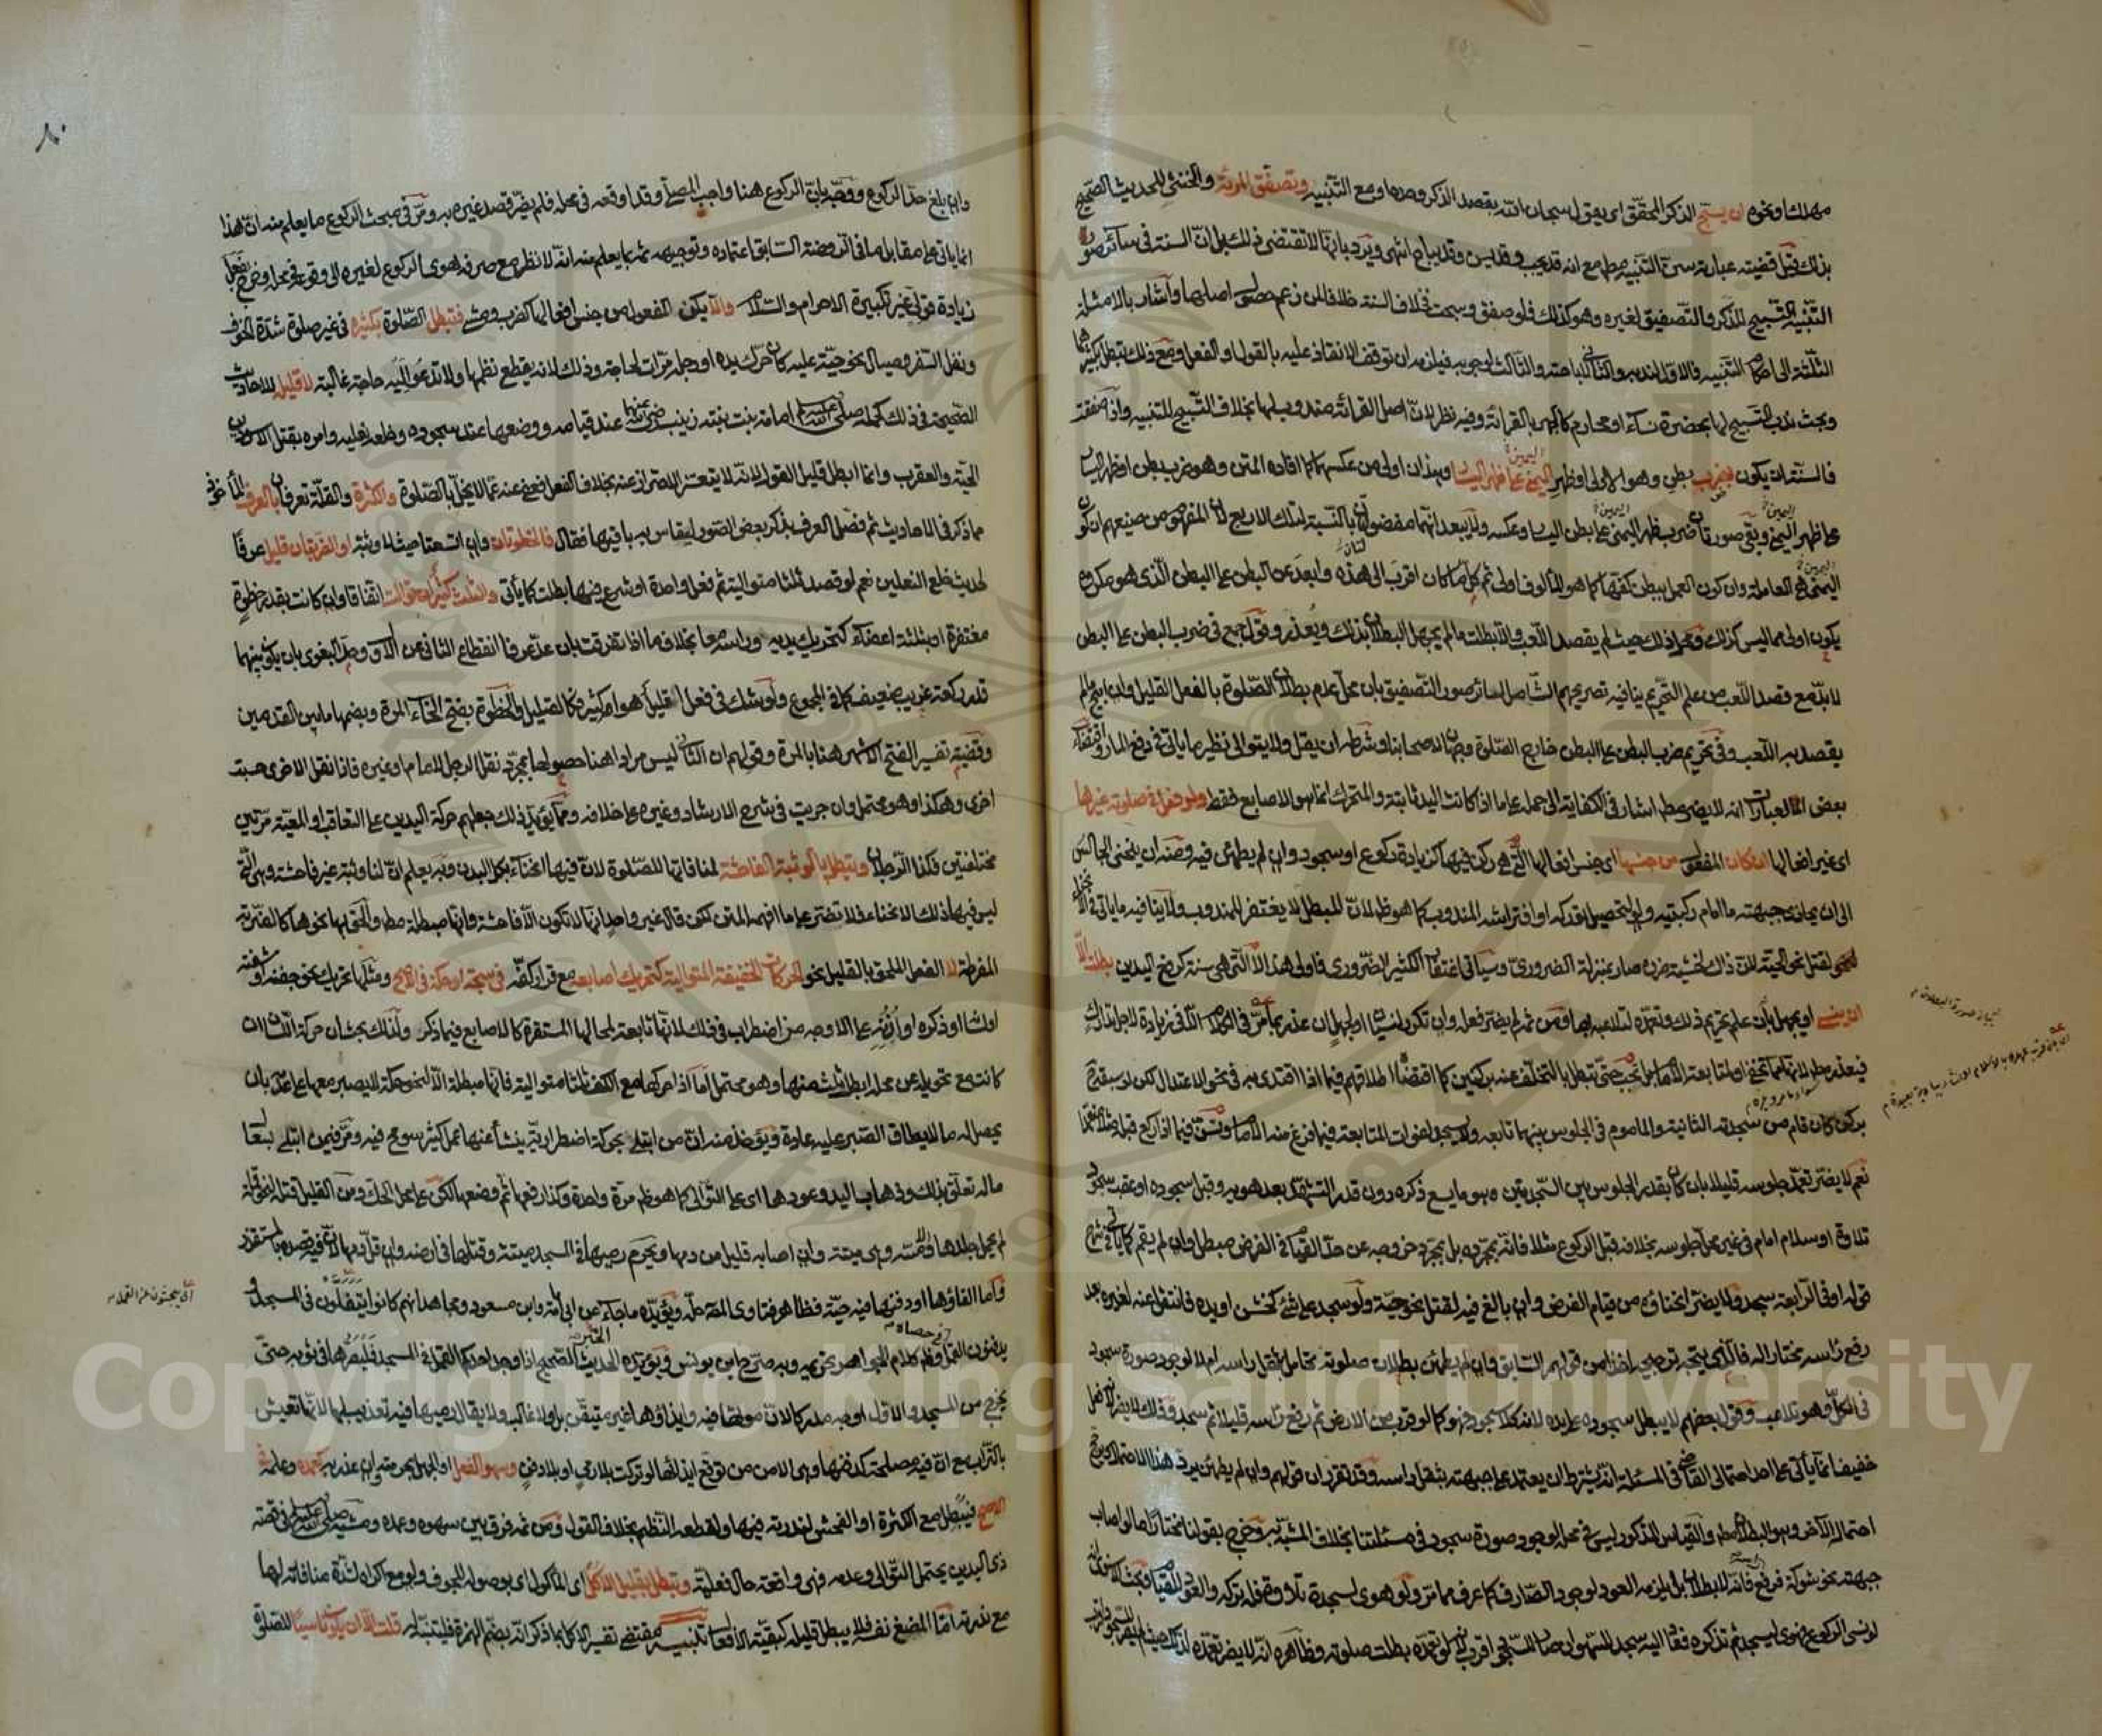 مهلك او نحوه ان يسبح الذكر المحقق اي يقول سبحان الله بقصد الذكر وحده او مع التنبيه وتصفق المرأة والخنثى للحديث الصحيح
بذلك قيل قضيته عبارته سن التنبيه مطلقا مع انه قد يجب وقد يسن وقد يباح انتهى ويرد بانها لا تقتضي ذلك بل ان السنة في سائر صور
التنبيه التسبيح للذكر والتصفيق لغيره وهو كذلك فلو صفق وسبحت فخلاف السنة خلافا لمن زعم حصول اصلها واشار بالامثلة
الثلاثة الى احكام التنبيه والاول لندبه والثاني لاباحته والثالث لوجوبه فيلزمه ان توقف الانقاذ عليه بالقول او الفعل ومع ذلك تبطل بكثيرهما
وبحث ندب التسبيح لها بحضرة نساء او محارم كالجهر بالقراءة وفيه نظر لان اصل القراءة مندوب لها بخلاف التسبيح للتنبيه واذا صفقت
فالسنة ان يكون بضرب بطن وهو الاولى او ظهر اليمين على ظهر اليسار وهذان اولى من عكسهما كما افاده المتن وهو ضرب بطن او ظهر اليسار
على ظهر اليمين وبقي صورتان ضرب ظهر اليمنى على بطن اليسار وعكسه ولا يبعد انهما مفضولان بالنسبة لتلك الاربع لان المفهوم من صنيعهم ان كون
اليمنى هي العاملة وان كون العمل ببطن كفها كما هو المألوف اولى ثم كل ما كان اقرب الى هذه وابعد عن البطن على البطن الذي هو مكروه
يكون اولى مما ليس كذلك ومحل ذلك حيث لم يقصد اللعب والا بطلت ما لم يجهل البطلان بذلك ويعذر وقول جمع في ضرب البطن على البطن
لا بد مع قصد اللعب من علم التحريم ينافيه تصريحهم الشامل لسائر صور التصفيق بان محل عدم بطلان الصلوة بالفعل القليل وان ابيح ما لم
يقصد به اللعب وفي تحريم ضرب البطن على البطن خارج الصلوة وجهان لاصحابنا وشرطه ان يقل ولا يتوالى نظير ما يأتي في دفع المار واقتضاء
بعض العبارات انه لا يضر مطلقا اشار في الكفاية الى حمله على ما اذا كانت اليد ثابتة والمتحرك انما هو الاصابع فقط ولو فعل في صلوته غيرها
اي غير افعالها ان كان المفعول من جنسها اي جنس افعالها التي هي ركن فيها كزيادة ركوع او سجود وان لم يطمئن فيه ومنه ان ينحني الجالس
الى ان يحاذي جبهته ما امام ركبتيه ولو لتحصيل توركه او افتراشه المندوب كما هو ظاهر لان المبطل لا يغتفر للمندوب ولا ينافيه ما يأتي في الانحناء
لنحو قتل نحو الحية لان ذلك لخشية ضرره صار بمنزلة الضروري وسيأتي اغتفار الكثير الضروري فاولى هذا لا التي هي سنة كرفع اليدين بطلت الا
ان ينسى او يجهل بان علم تحريم ذلك وتعمده لتلاعبه بها ومن ثم لم يضر فعله وان تكرر لنسيان او لجهل ان عذر بما مر في الكلام الا في زيادة لاجل تدارك
فيعذر مطلقا لانه مما يخفى او لمتابعة الامام بل تجب حتى تبطل بالتخلف عنه بركنين كما اقتضاه اطلاقهم فيما اذا اقتدى به في نحو الاعتدال لكن لو سبقه ح
بركن كان قام من سجدته الثانية والماموم في الجلوس بينهما تابعه ولا يسجد لفوات المتابعة فيما فرغ منه الامام وتسن فيما اذا ركع قبله مثلا متعمدا
نعم لا يضر تعمد جلوسه قليلا بان كان بقدر الجلوس بين السجدتين وهو ما يسع ذكره دون قدر التشهد بعد هويه وقبل سجوده او عقب سجود
تلاوة او سلام امام في غير محل جلوسه بخلافه قبل الركوع مثلا فانه بمجرده بل بمجرد خروجه عن حد القيام في الفرض مبطل وان لم يقم كما يأتي في شرح
قوله او في الرابعة سجد ولا يضر انحناؤه من قيام الفرض وان بالغ فيه لقتل نحو حية ولو سجد على شيء كخشن او يده فانتقل عنه لغيره بعد
رفع راسه مختارا له فالذي يتجه ترجيحه اخذا من قولهم السابق وان لم يطمئن بطلان صلوته تحامل بثقل راسه ام لا لوجود صورة سجود
في الكل وهو تلاعب وقول بعضهم لا يبطل سجوده على يده لانه كلا سجود فهو كما لو قرب من الارض ثم رفع راسه قليلا ثم سجد وذلك لا يضر لانه فعل
خفيف انما يأتي على احد احتمالي القاضي في المسئلة انه يشترط ان يعتمد على جبهته بثقل راسه وقد تقرر ان قولهم وان لم يطمئن يرد هذا الاحتمال ويرجح
احتماله الآخر وهو البطلان مطلقا والقياس المذكور ليس في محله لوجود صورة سجود في مسئلتنا بخلاف المشبه به وخرج بقولنا مختارا ما لو اصاب
جبهته نحو شوكة فرفع فانه لا بطلان بل يلزمه العود لوجود الصارف كما عرف مما مر ولو هوى لسجدة تلاوة فله تركه والعود للقيام وبحث الاسنوي انه
لو نسي الركوع فهوى ليسجد ثم تذكره فعاد اليه سجد للسهو ان صار للسجود اقرب لانه لو تعمده بطلت صلوته وظاهره انه لا يضر تعمده
وان بلغ حد الركوع ووجه بان الركوع هنا واجب المصلي وقد اوقعه في محله فلم يضر قصد غيره به ومر في مبحث الركوع ما يعلم منه ان هذا
انما يأتي على مقابل ما في الروضة السابق اعتماده وتوجيهه ثم بما يعلم منه انه لا نظر مع صرفه هوي الركوع لغيره الى وقوعه في محله وخرج بفعل
زيادة قولي غير تكبيرة الاحرام والسلام والا يكن المفعول من جنس افعالها كضرب ومشي فتبطل الصلوة بكثيره في غير صلوة شدة الخوف
ونفل السفر وصيال نحو حية عليه كان حرك يده او رجله مرات لحاجة وذلك لانه يقطع نظمها ولا تدعو اليه حاجة غالبة لا قليله للاحاديث
الصحيحة في ذلك كحمله صلى الله عليه وسلم امامة بنت بنته زينب رضي الله عنها عند قيامه ووضعها عند سجوده وخلعه نعليه وامره بقتل الاسودين
الحية والعقرب وانما ابطل قليل القول لانه لا يتعسر الاحتراز عنه بخلاف الفعل فعفي عنه عما لا يخل بالصلوة والكثرة والقلة تعرفان بالعرف المأخوذ
مما ذكر في الاحاديث ثم فصل العرف بذكر بعض الصور ليقاس به باقيها فقال فالخطوتان وان اتسعتا حيث لا وثبة او الضربتان قليل عرفا
لحديث خلع النعلين نعم لو قصد ثلثا متوالية ثم فعل واحدة او شرع فيها بطلت كما يأتي والثلث كثير ان توالت اتفاقا وان كانت بقدر خطوة
مغتفرة او بثلثة اعضاء كتحريك يديه وراسه معا بخلاف ما اذا تفرقت بان عد عرفا انقطاع الثاني عن الاول وحد البغوي بان يكون بينهما
قدر ركعة غريب ضعيف كما في المجموع ولو شك في فعل اقليل هو ام كثير فكالقليل والخطوة بفتح الخاء المرة وبضمها ما بين القدمين
وقضية تفسير الفتح الاشهر هنا بالمرة وقولهم ان الثاني ليس مرادا هنا حصولها بمجرد نقل الرجل للامام او غيره فاذا نقل الاخرى حسبت
اخرى وهكذا وهو محتمل وان جريت في شرح الارشاد وغيره على خلافه ومما يؤيد ذلك جعلهم حركة اليدين على التعاقب او المعية مرتين
مختلفتين فكذا الرجلان وتبطل بالوثبة الفاحشة لمنافاتها للصلوة لان فيها انحناء بكل البدن وبه يعلم ان لنا وثبة غير فاحشة وهي التي
ليس فيها ذلك الانحناء فلا تضر على ما افهمه المتن لكن قال غير واحد انها لا تكون الا فاحشة وانها مبطلة مطلقا والحق بها نحوها كالضربة
المفرطة لا الفعل الملحق بالقليل نحو الحركات الخفيفة المتوالية كتحريك اصابعه مع قرار كفه في سبحة او حكة في الاصح ومثلها تحريك نحو جفنه او شفته
او لسانه او ذكره او اذنه على الاوجه من اضطراب في ذلك لانها تابعة لمحالها المستقرة كالاصابع فيما ذكر ولذلك بحث ان حركة اللسان ان
كانت مع تحويله عن محله ابطل ثلث منها وهو محتمل اما اذا حركها مع الكف ثلثا متوالية فانها مبطلة الا لنحو حكة لا يصبر معها على عدمه بان
يحصل له ما لا يطاق الصبر عليه عادة ويؤخذ منه ان من ابتلي بحركة اضطرارية ينشأ عنها عمل كثير سومح فيه ومر فيمن ابتلي بسعال
ما له تعلق بذلك وذهاب اليد وعودها اي على التوالي كما هو ظاهر مرة واحدة وكذا رفعها ثم وضعها لكن على محل الحك ومن القليل قتله لنحو قملة
لم يحمل جلدها ولا مسه وهي ميتة وان اصابه قليل من دمها ويحرم رميها في المسجد ميتة وقتلها في ارضه وان قل دمها لان فيه قصده بالمستقذر
واما القاؤها او دفنها فيه حية فظاهر فتاوى المصنف حله ويؤيده ما جاء عن ابي امامة وابن مسعود ومجاهد انهم كانوا يتفلون في المسجد و
يدفنون القمل في حصاه وظاهر كلام الجواهر تحريمه وبه صرح ابن يونس ويؤيده الخبر الصحيح اذا وجد احدكم القملة في المسجد فليصرها في ثوبه حتى
يخرج من المسجد والاول اوجه مدركا لان موتها فيه وايذاؤها غير متيقن بل ولا غالب ولا يقال رميها فيه تعذيب لها لانها تعيش
بالتراب مع ان فيه مصلحة كدفنها وهي الامن من توقع ايذائها لو تركت بلا رمي او بلا دفن وسهو الفعل او الجهل بحرمته وان عذر به كعمده وعلمه في
الاصح فيبطل مع الكثرة او الفحش لندرته فيها ولقطعه النظم بخلاف القول ومن ثم فرق بين سهوه وعمده ومشيه صلى الله عليه وسلم في قصة
ذي اليدين يحتمل التوالي وعدمه فهي واقعة حال فعلية وتبطل بقليل الاكل اي المأكول اي بوصوله للجوف ولو مع اكراه لشدة منافاته لها
مع ندرته اما المضغ نفسه فلا يبطل قليله كبقية الافعال تنبيه مقتضى تفسير الاكل بما ذكر انه بضم الهمزة فليتنبه له قلت الا ان يكون ناسيا للصلوة